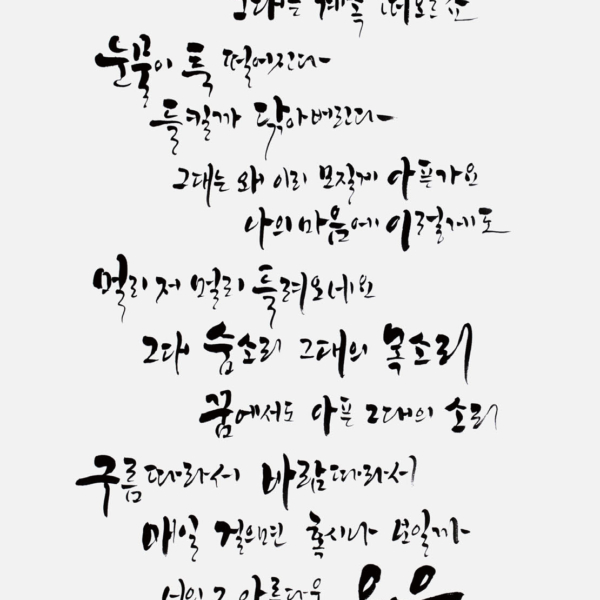 그대는 계속 떠오르죠
눈물이 툭 떨어진다
들킬까 닦아버린다
그대는 왜 이리 모질게 아픈가요
나의 마음에 이렇게도
멀리 저 멀리 들려오네요
그대 숨소리 그대의 목소리
꿈에서도 아픈 그대의 소리
구름따라서 바람따라서
매일 걸으면 혹시나 보일까
너의 그 아름다운